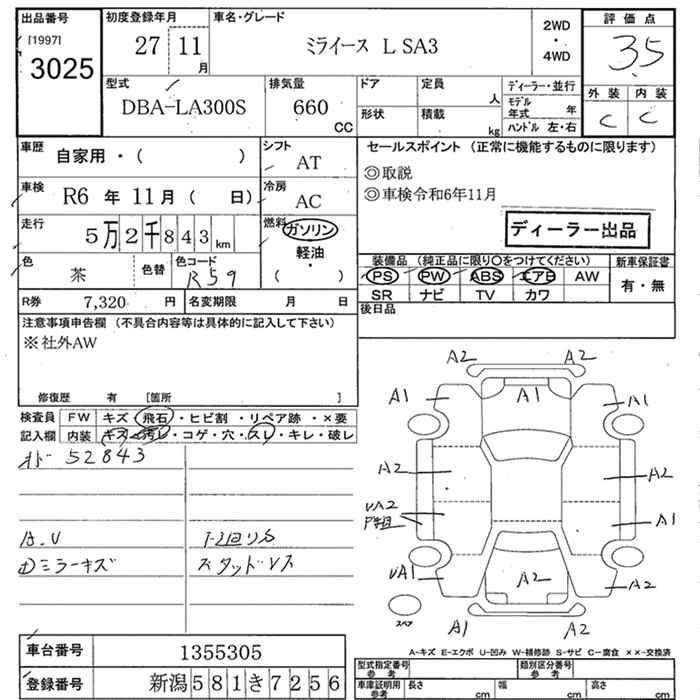 出品番号
[1997]
3025
初度登録年月
27 11
月
車名・グレード
ミライース L SA3
2WD
・
4WD
評価点
3.5
外装 内装
C C
型式
DBA-LA300S
排気量
660
CC
ドア
形状
定員
人
積載
kg
ディーラー・並行
モデル
年式 年
ハンドル 左・右
車歴
自家用・( )
シフト
AT
車検
R6 年 11 月 ( 日)
冷房
AC
走行
5万2千843 km
燃料
ガソリン
軽油・
( )
色
茶
色替
色コード
R59
R券 7,320 円
名変期限 月 日
セールスポイント (正常に機能するものに限ります)
◎取説
◎車検令和6年11月
ディーラー出品
装備品 (純正品に限り〇をつけてください)
新車保証書
PS PW ABS エアB AW
有・無
SR ナビ TV カワ
後日品
注意事項申告欄 (不具合内容等は具体的に記入して下さい)
※社外AW
修復歴 有 [箇所 ]
検査員
記入欄
FW キズ・飛石・ヒビ割・リペア跡・×要
内装 キズ・汚レ・コゲ・穴・スレ・キレ・破レ
オド 52843
ミラーキズ
スタッドレス
A2 A2
A1 A1 A1
A2 A2
UA2 A1
UA1 A2 A2
A1 A2
スペア
A-キズ E-エクボ U-凹み W-補修跡 S-サビ C-腐食 ××-交換済
車台番号 1355305
登録番号 新潟581き7256
型式指定番号
参考
類別区分番号
参考
車庫証明用
参考
長さ cm
幅 cm
高さ cm